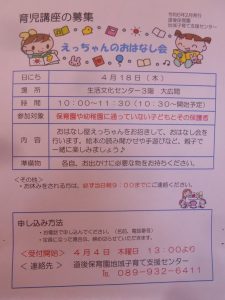 育児講座の募集
道後保育園
地域子育て支援センター
えっちゃんのおはなし会
日にち ４月１８日（木）
場所 生活文化センター３階 大広間
時間 １０：００～１１：３０（１０：３０～開始予定）
参加対象 保育園や幼稚園に通っていない子どもとその保護者
内容 おはなし屋えっちゃんをお招きして、お話し会を行います。絵本の読み聞かせや手遊びなど、親子で一緒に楽しみましょう♪
準備物 各自、お出かけに必要な物をお持ちください。
＜その他＞
・お休みをされる方は、必ず当日朝９：００までにご連絡ください。
申し込み方法
・お電話で申し込んでください。（名前、電話番号）
・定員になった場合は、締め切らせていただきます。
＜受付開始＞ ４月４日 木曜日 １３：００より
＜連絡先＞ 道後保育園地域子育て支援センター
TEL ０８９－９３２－６４１１